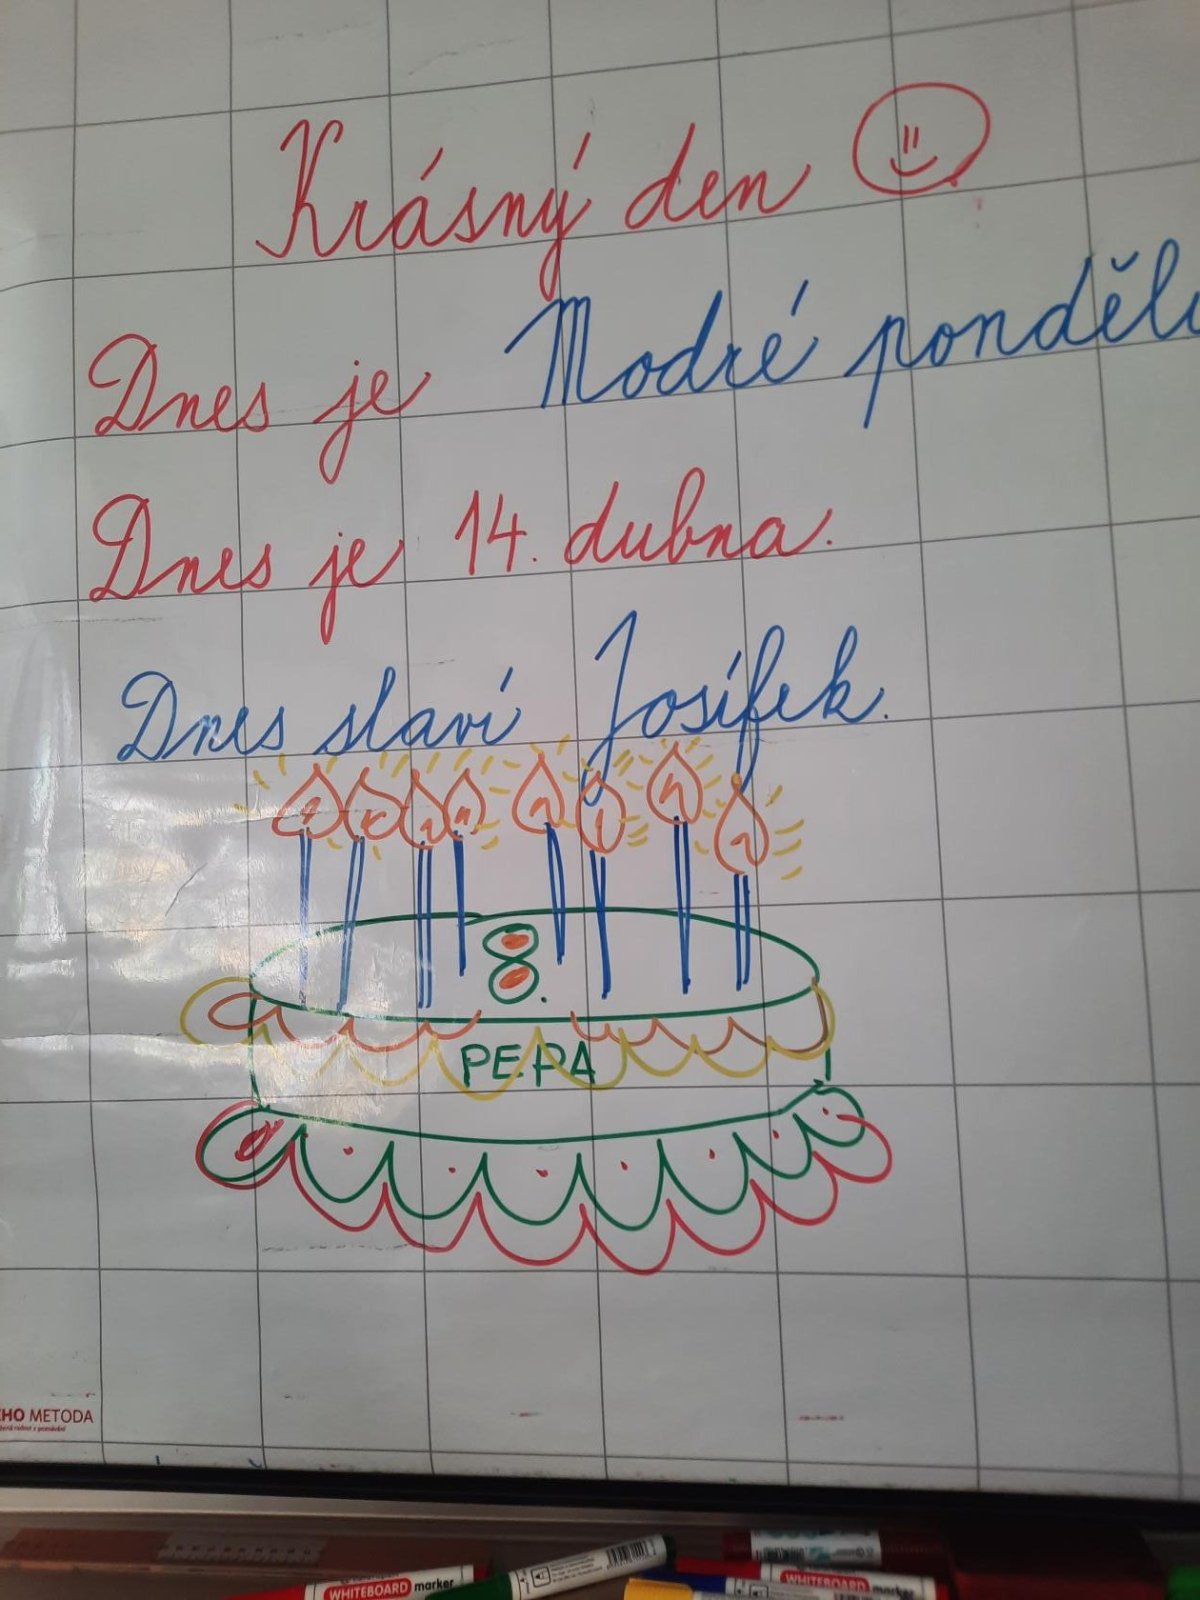 Krásný den
Dnes je Modré ponděl
Dnes je 14. dubna.
Dnes slaví Josífek.
8.
PEPA
METODA
WHITEBOARD marker
WHITEBOARD marker